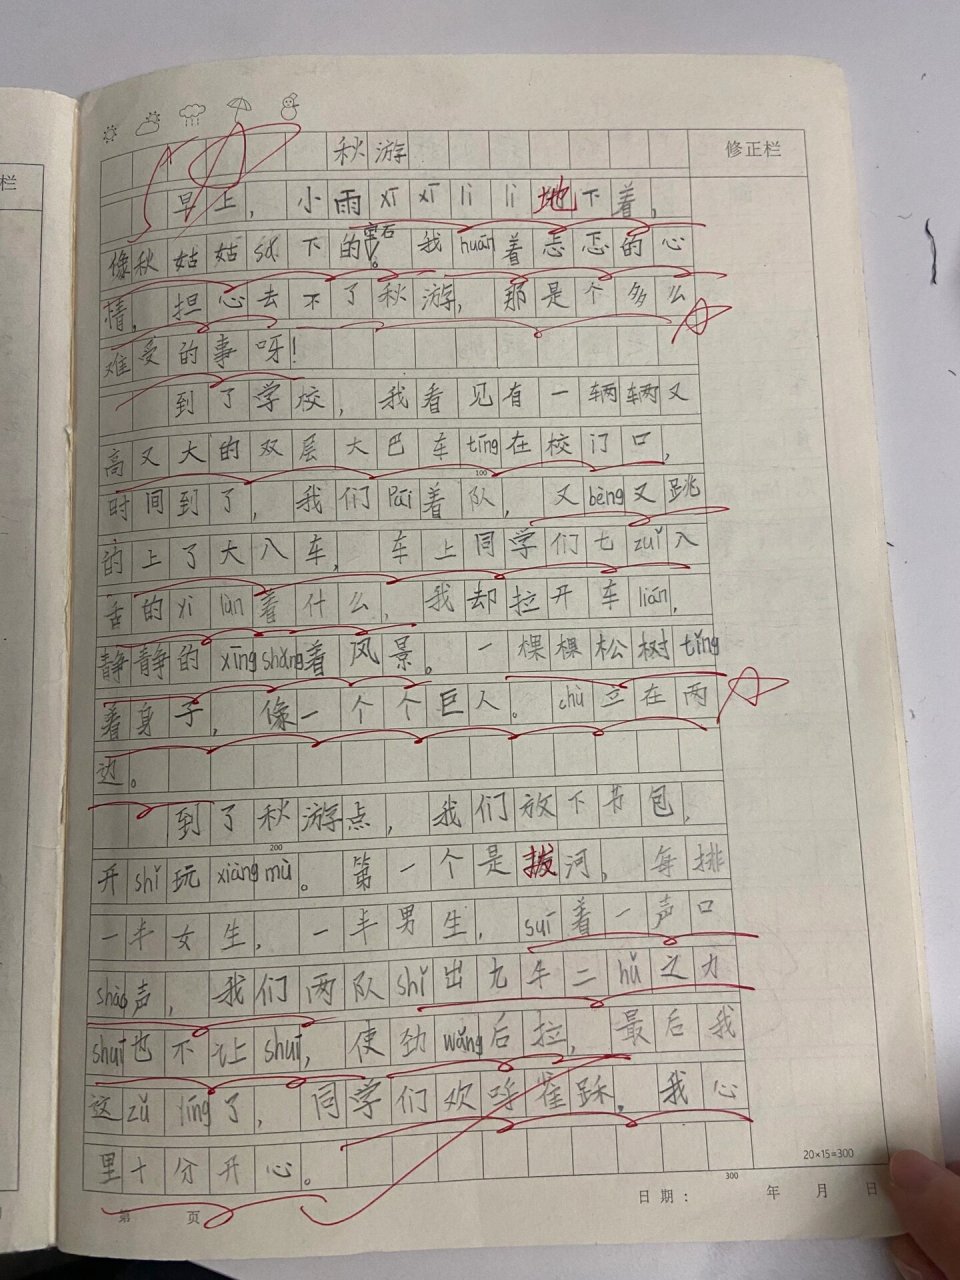 栏
修正栏
秋游
早上，小雨xī xī lì lì地下着，
像秋姑姑sǎ下的宝石。我huān着忐忑的心
情，担心去不了秋游，那是个多么
难受的事呀！
到了学校，我看见有一辆辆又
高又大的双层大巴车tíng在校门口，
100
时间到了，我们pái着队，又bèng又跳
的上了大八车，车上同学们七zuǐ八
舌的yì lùn着什么，我却拉开车lián，
静静的xīng shǎng着风景。一棵棵松树tǐng
着身子，像一个个巨人。chù立在两
边。
到了秋游点，我们放下书包，
200
开shǐ玩xiàng mù。第一个是拔河，每排
一半女生，一半男生，suī着一声口
shào声，我们两队shǐ出九牛二hǔ之力
shuī也不让shuī，使劲wǎng后拉，最后我
这zǔ yíng了，同学们欢呼雀跃。我心
里十分开心。
20×15=300
300
日期： 年 月 日
第 页